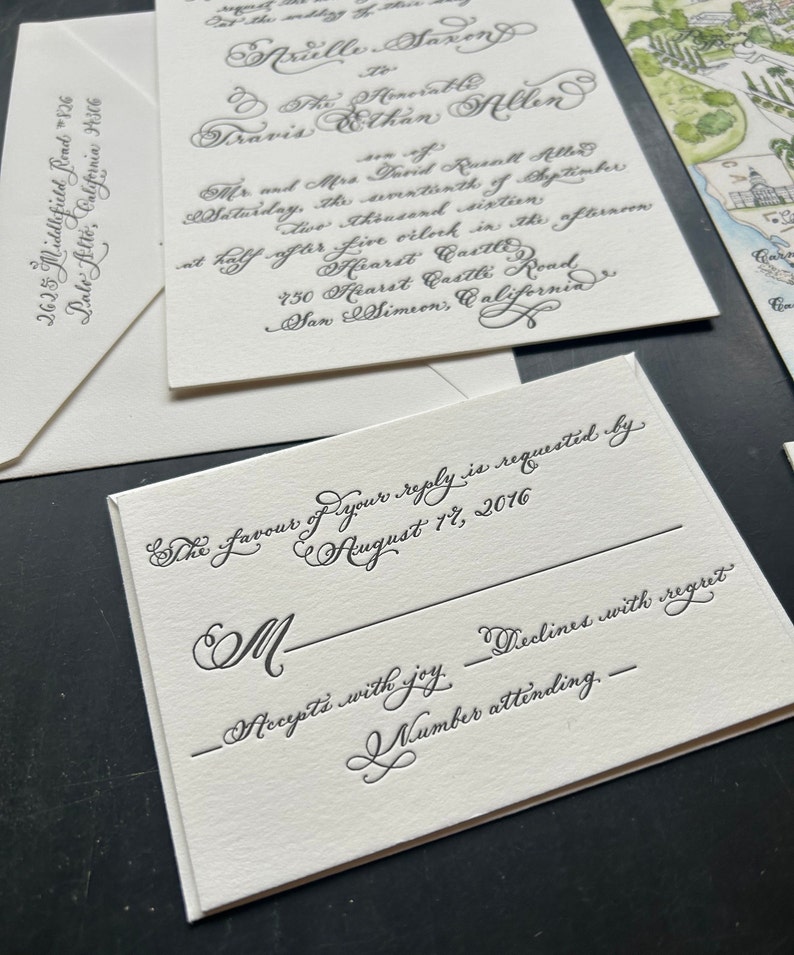 request the
at the wedding of their
Arielle Saxon
to
The Honorable
Travis Ethan Allen
son of
Mr. and Mrs. David Russell Allen
Saturday, the seventeenth of September
two thousand sixteen
at half after five o'clock in the afternoon
Hearst Castle
750 Hearst Castle Road
San Simeon, California
2625 Middlefield Road #826
Palo Alto, California 94306
The favour of your reply is requested by
August 17, 2016
M
Accepts with joy Declines with regret
Number attending
CA